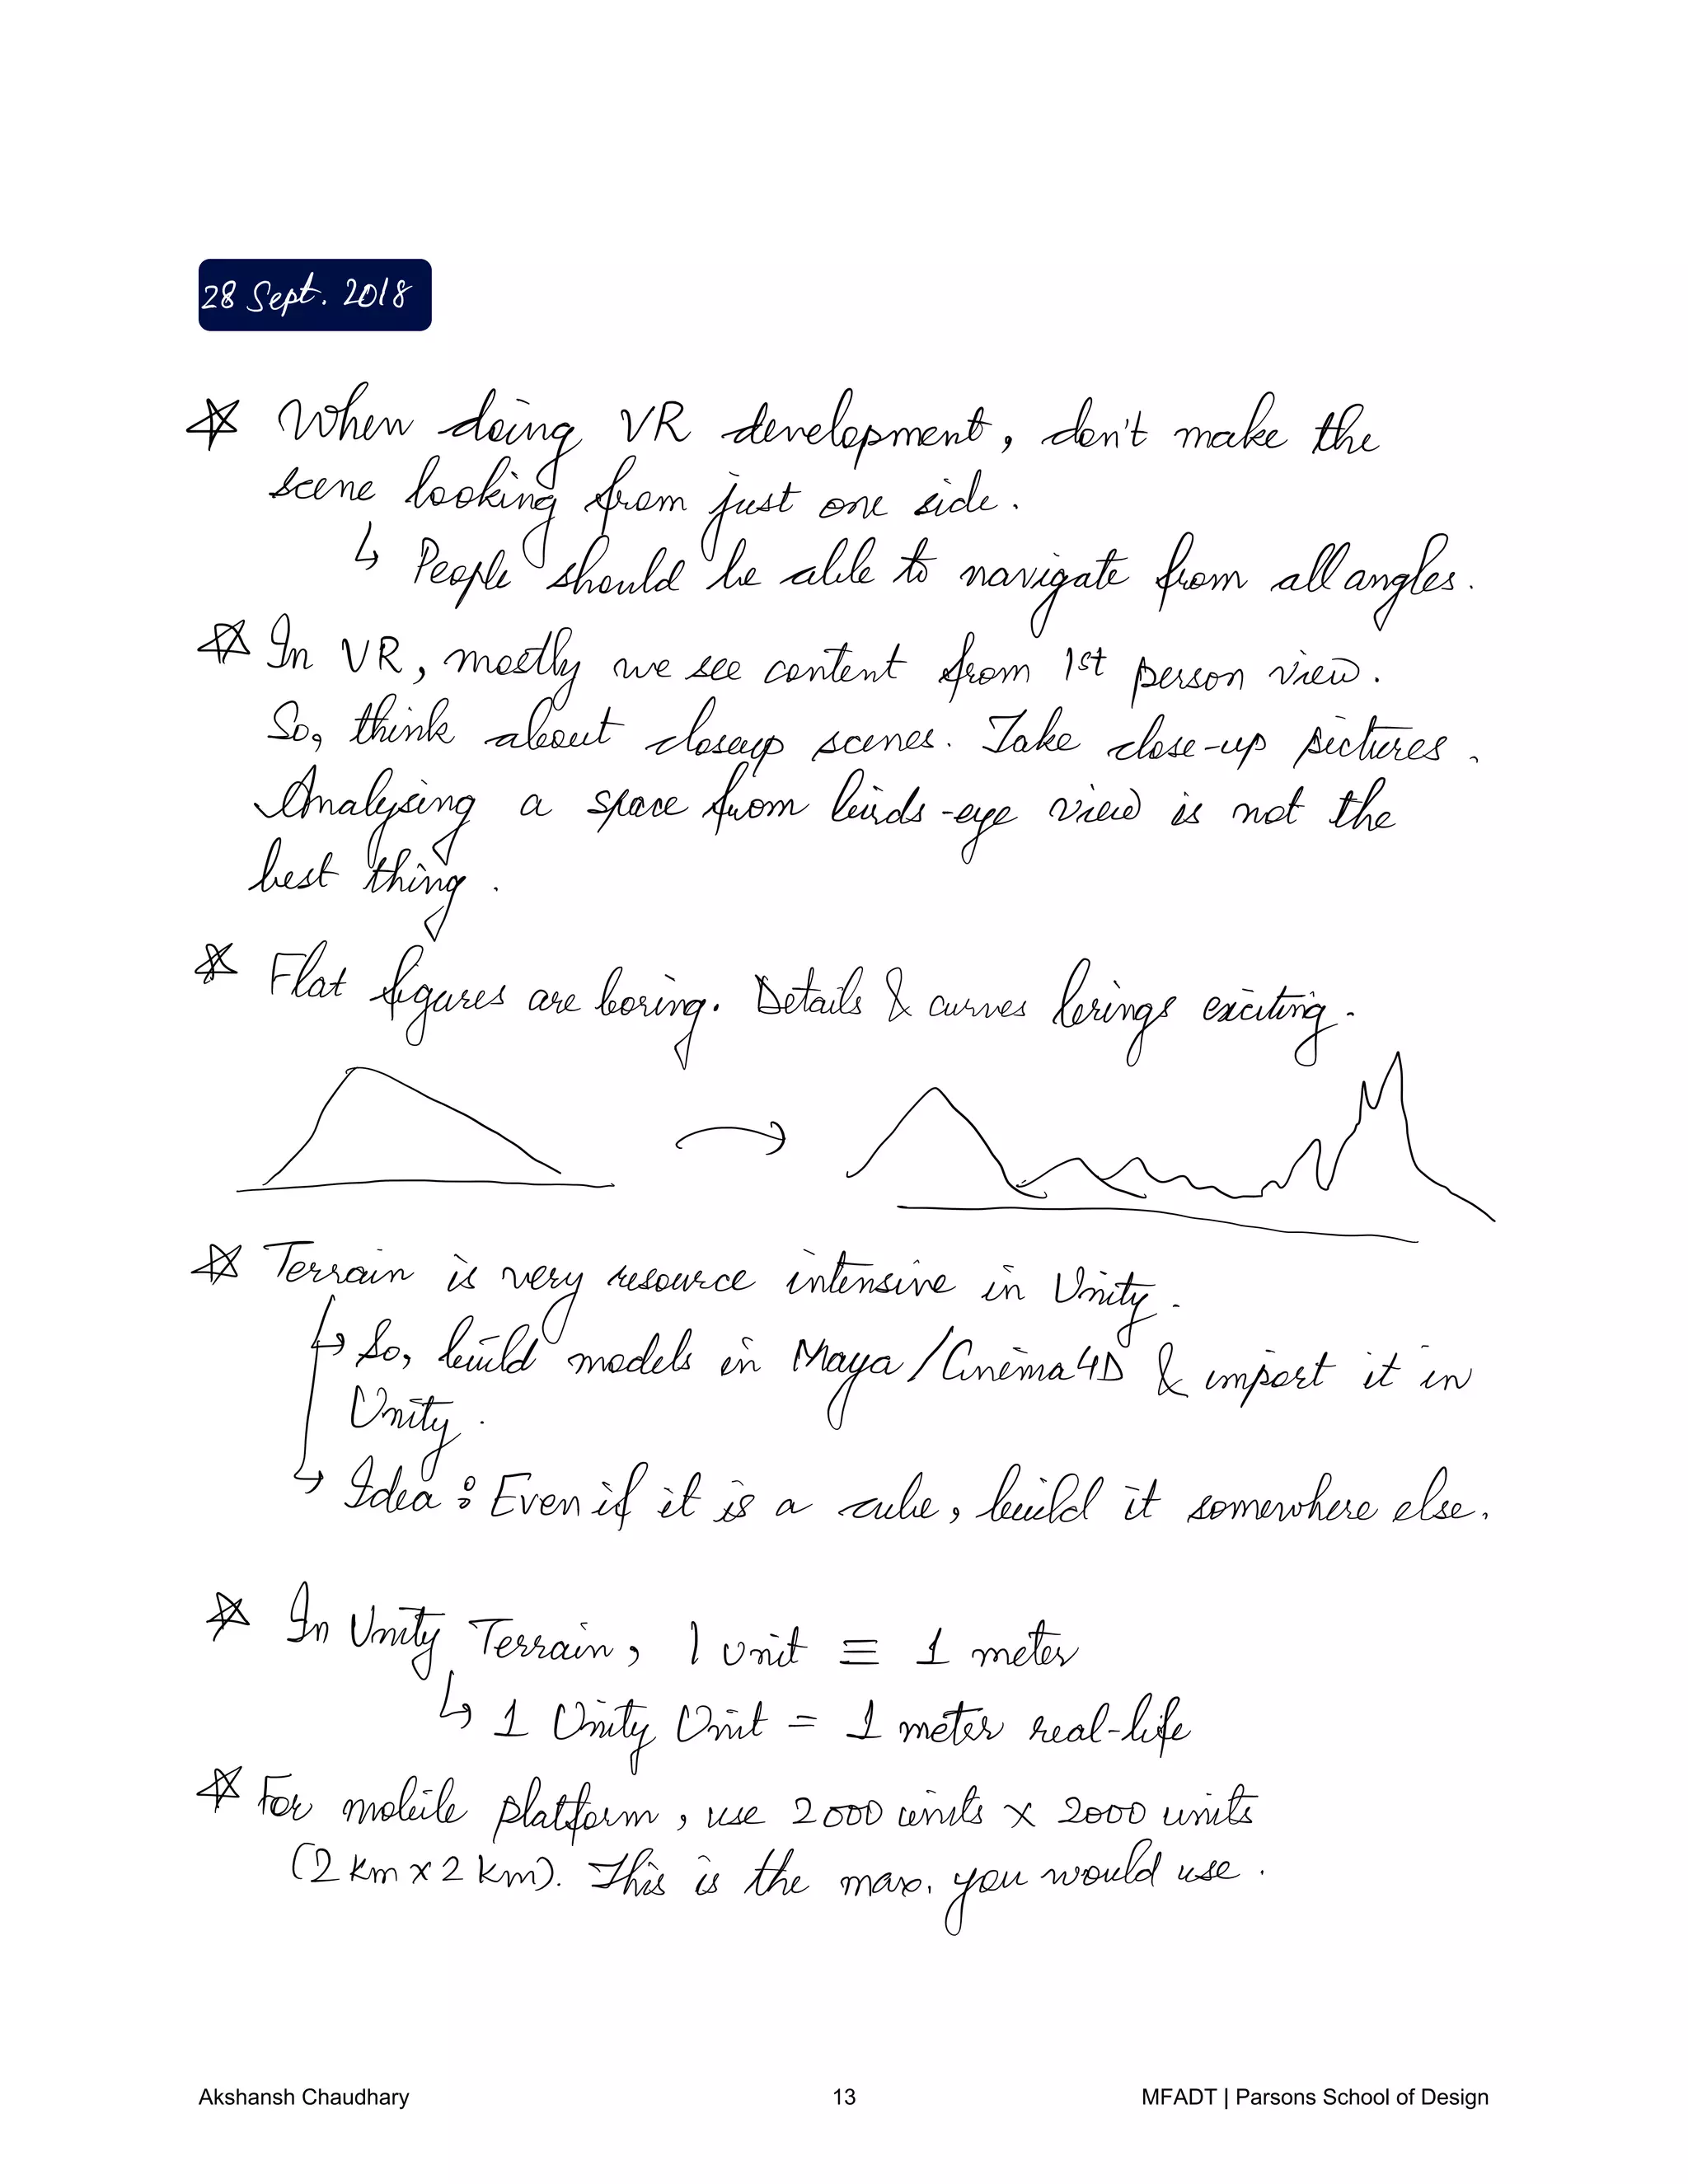 28 Sept. 2018
☆ When doing VR development, don't make the
scene looking from just one side.
↳ People should be able to navigate from all angles.
☆ In VR, mostly we see content from 1st person view.
So, think about closeup scenes. Take close-up pictures.
Analysing a space from birds-eye view is not the
best thing.
☆ Flat figures are boring. Details & curves brings exciting.
☆ Terrain is very resource intensive in Unity.
↳ So, build models in Maya/Cinema4D & import it in
Unity.
↳ Idea: Even if it is a cube, build it somewhere else.
☆ In Unity Terrain, 1 unit ≡ 1 meter
↳ 1 Unity Unit = 1 meter real-life
☆ For mobile platform, use 2000 units x 2000 units
(2 km x 2 km). This is the max. you would use.
Akshansh Chaudhary 13 MFADT | Parsons School of Design